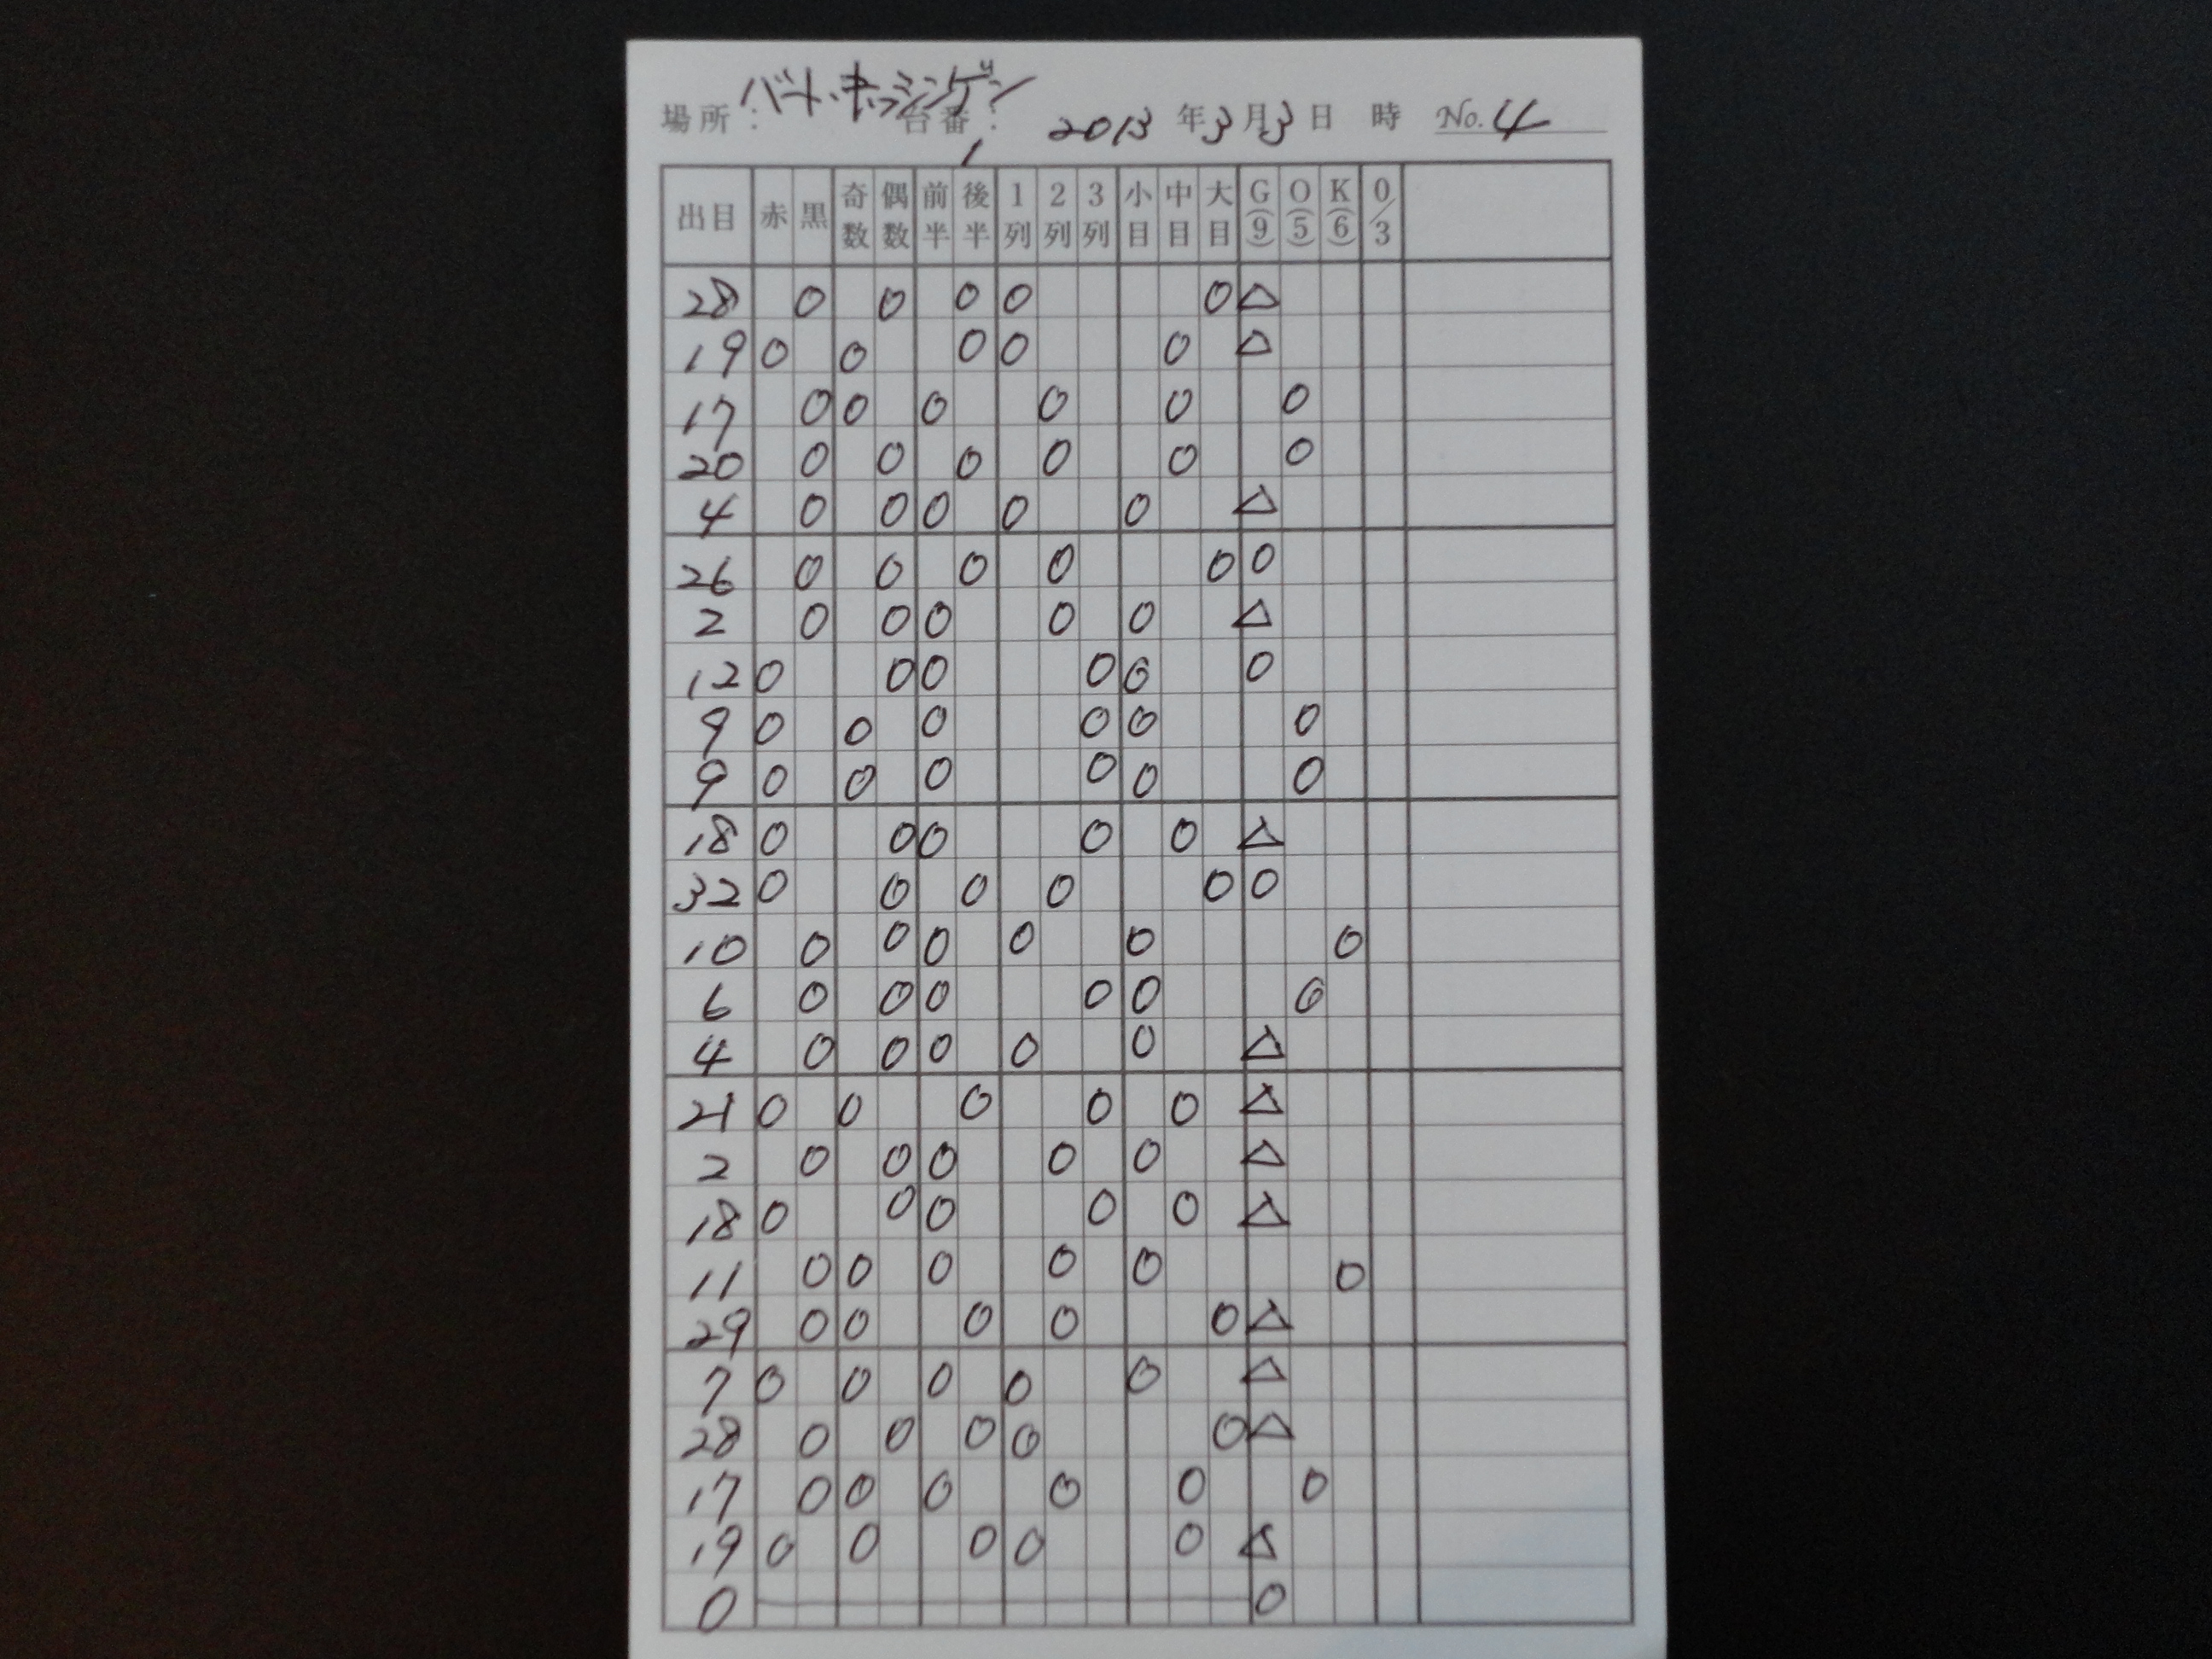 場所： バート・ホッシンゲン 台番： 1 2013 年 3 月 3 日 時 No. 4
出目 赤 黒 奇数 偶数 前半 後半 1列 2列 3列 小目 中目 大目 G(9) O(5) K(6) 0/3
28 0 0 0 0 0 △
19 0 0 0 0 0 △
17 0 0 0 0 0 0
20 0 0 0 0 0 0
4 0 0 0 0 0 △
26 0 0 0 0 0 0
2 0 0 0 0 0 △
12 0 0 0 0 0 0
9 0 0 0 0 0 0
9 0 0 0 0 0 0
18 0 0 0 0 0 △
32 0 0 0 0 0 0
10 0 0 0 0 0 0
6 0 0 0 0 0 0
4 0 0 0 0 0 △
21 0 0 0 0 0 △
2 0 0 0 0 0 △
18 0 0 0 0 0 △
11 0 0 0 0 0 0
29 0 0 0 0 0 △
7 0 0 0 0 0 △
28 0 0 0 0 0 △
17 0 0 0 0 0 0
19 0 0 0 0 0 △
0 0